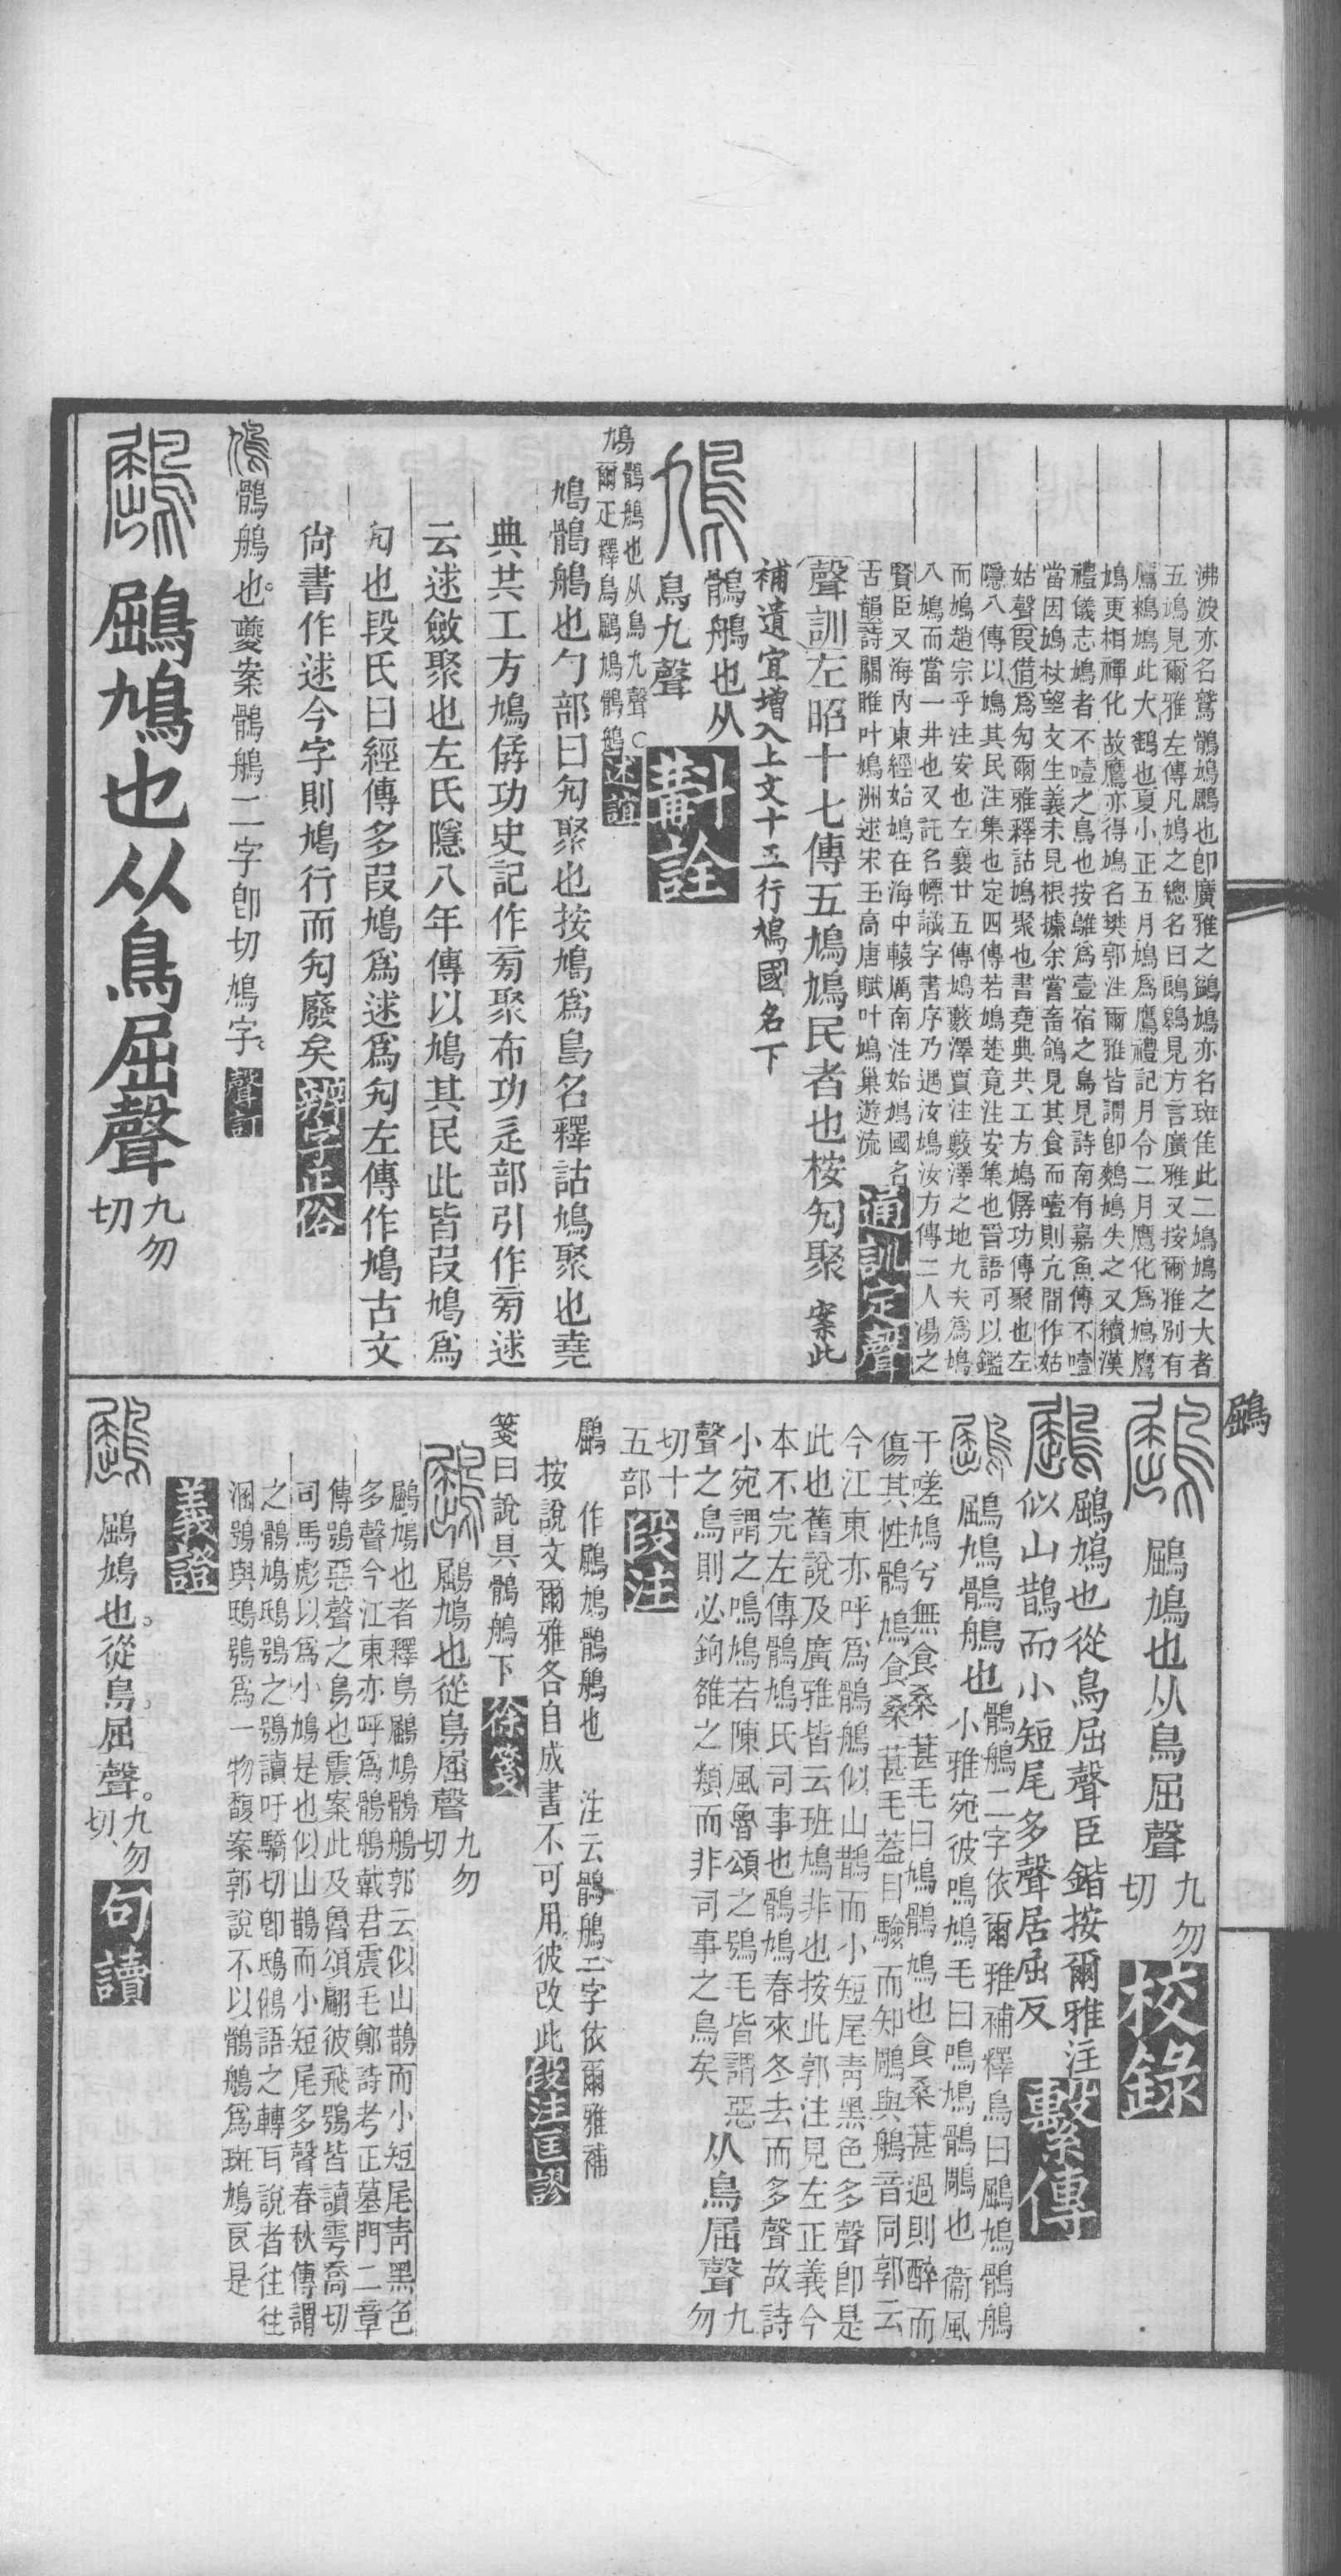 沸波亦名鷲鶻鳩鶌也卽廣雅之鶻鳩亦名斑隹此二鳩鳩之大者
五鳩見爾雅左傳凡鳩之總名曰見方言廣雅又按爾雅別有
鷹鶆鳩此大鶴也夏小正五月鳩爲鷹禮記月令二月鷹化爲鳩鷹
鳩更相禪化故鷹亦得鳩名樊郭注爾雅皆謂卽鷞鳩失之又續漢
禮儀志鳩者不噎之鳥也按鵻爲壹宿之鳥見詩南有嘉魚傳不噎
當因鳩杖望文生義未見根據余嘗畜鴿見其食而噎則亢間作姑
姑聲叚借爲勼爾雅釋詁鳩聚也書堯典共工方鳩僝功傳聚也左
隱八傳以鳩其民注集也定四傳若鳩楚竟注安集也晉語可以鑑
而鳩趙宗乎注安也左襄廿五傳鳩藪澤賈注藪澤之地九夫爲鳩
八鳩而當一井也又託名幖識字書序乃遇汝鳩汝方傳二人湯之
賢臣又海內東經始鳩在海中轅厲南注始鳩國名
古韻詩關雎叶鳩洲逑宋玉高唐賦叶鳩巢遊流
通訓定聲
聲訓左昭十七傳五鳩鳩民者也桉勼聚 案此
補遺宜增入上文十五行鳩國名下
鳩鶻鵃也从鳥九聲
斠詮
鳩鶻鵃也从鳥九聲○爾疋釋鳥鶌鳩鶻鵃
述誼
鳩鶻鵃也勹部曰勼聚也按鳩爲鳥名釋詁鳩聚也堯
典共工方鳩僝功史記作㫄聚布功辵部引作㫄逑
云逑斂聚也左氏隱八年傳以鳩其民此皆叚鳩爲
勼也段氏曰經傳多叚鳩爲逑爲勼左傳作鳩古文
尙書作逑今字則鳩行而勼廢矣
辨字正俗
鳩鶻鵃也夔案鶻鵃二字卽切鳩字
聲訂
鶌鶌鳩也从鳥屈聲九勿切
鶌
鶌鶌鳩也从鳥屈聲九勿切
校錄
鶌鶌鳩也從鳥屈聲臣鍇按爾雅注
似山鵲而小短尾多聲居屈反
繫傳
鶌鶌鳩鶻鵃也鶻鵃二字依爾雅補釋鳥曰鶌鳩鶻鵃
小雅宛彼鳴鳩毛曰鳴鳩鶻鵰也衞風
于嗟鳩兮無食桑葚毛曰鳩鶻鳩也食桑葚過則醉而
傷其性鶻鳩食桑葚毛葢目驗而知鵰與鵃音同郭云
今江東亦呼爲鶻鵃似山鵲而小短尾靑黑色多聲卽是
此也舊說及廣雅皆云班鳩非也按此郭注見左正義今
本不完左傳鶻鳩氏司事也鶻鳩春來冬去而多聲故詩
小宛謂之鳴鳩若陳風魯頌之鴞毛皆謂惡
聲之鳥則必鉤雒之類而非司事之鳥矣
从鳥屈聲九勿
切十五部
段注
鶌 作鶌鳩鶻鵃也 注云鶻鵃二字依爾雅補
按說文爾雅各自成書不可用彼改此
段注匡謬
箋曰說具鶻鵃下
徐箋
鶌鶌鳩也從鳥屈聲九勿切
鶌鳩也者釋鳥鶌鳩鶻鵃郭云似山鵲而小短尾靑黑色
多聲今江東亦呼爲鶻鵃戴君震毛鄭詩考正墓門二章
傳鴞惡聲之鳥也震案此及魯頌翩彼飛鴞皆讀雩喬切
司馬彪以爲小鳩是也似山鵲而小短尾多聲春秋傳謂
之鶻鳩鴟鴞之鴞讀吁驕切卽鴟鵂語之轉耳說者往往
溷鴞與鴟鴞爲一物馥案郭說不以鶻鵃爲斑鳩良是
義證
鶌鶌鳩也從鳥屈聲九勿切
句讀